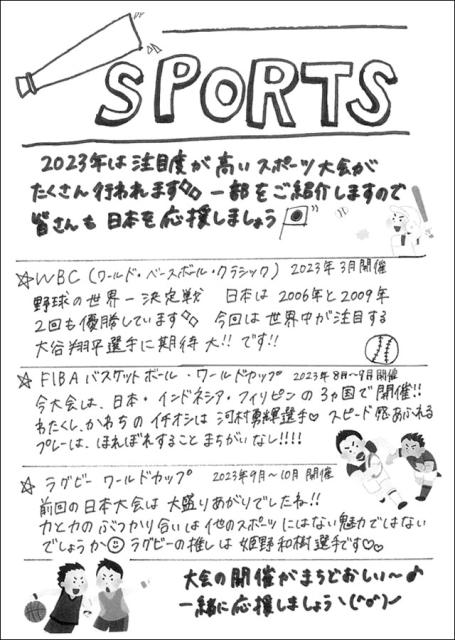 SPORTS
2023年は注目度が高いスポーツ大会が
たくさん行われます 一部をご紹介しますので
皆さんも日本を応援しましょう
☆WBC(ワールド・ベースボール・クラシック) 2023年3月開催
野球の世界一決定戦 日本は2006年と2009年
2回も優勝しています 今回は世界中が注目する
大谷翔平選手に期待大!!です!!
☆FIBAバスケットボール・ワールドカップ 2023年8月〜9月開催
今大会は、日本・インドネシア・フィリピンの3ヵ国で開催!!
わたくし、かわちのイチオシは河村勇輝選手♡ スピード感あふれる
プレーは、ほれぼれすることまちがいなし!!!!
☆ラグビーワールドカップ 2023年9月〜10月開催
前回の日本大会は大盛りあがりでしたね!!
力と力のぶつかり合いは他のスポーツにはない魅力ではない
でしょうか☺ラグビーの推しは姫野和樹選手です♡♡
大会の開催がまちどおしい〜♪
一緒に応援しましょう\(^o^)〜